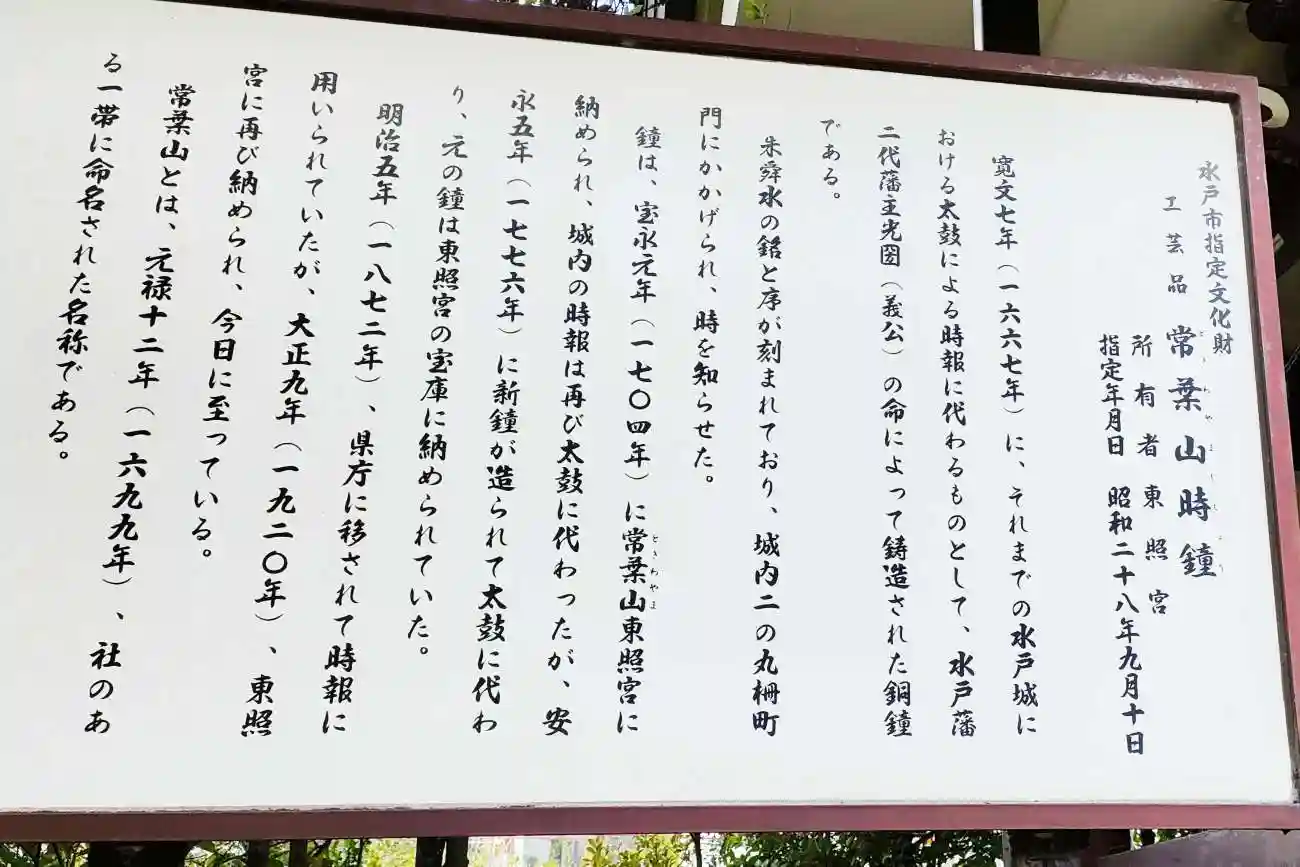 水戸市指定文化財
工芸品 常葉山時鐘
所有者 東照宮
指定年月日 昭和二十八年九月十日
寛文七年（一六六七年）に、それまでの水戸城に
おける太鼓による時報に代わるものとして、水戸藩
二代藩主光圀（義公）の命によって鋳造された銅鐘
である。
朱舜水の銘と序が刻まれており、城内二の丸柵町
門にかかげられ、時を知らせた。
鐘は、宝永元年（一七〇四年）に常葉山東照宮に
ときわやま
納められ、城内の時報は再び太鼓に代わったが、安
永五年（一七七六年）に新鐘が造られて太鼓に代わ
り、元の鐘は東照宮の宝庫に納められていた。
明治五年（一八七二年）、県庁に移されて時報に
用いられていたが、大正九年（一九二〇年）、東照
宮に再び納められ、今日に至っている。
常葉山とは、元禄十二年（一六九九年）、社のあ
る一帯に命名された名称である。